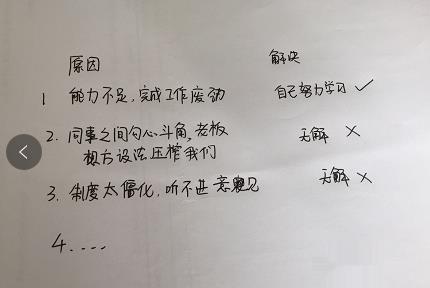 原因 解决
1 能力不足，完成工作费劲 自己努力学习 ✓
2. 同事之间勾心斗角，老板 无解 ×
想方设法压榨我们
3. 制度太僵化，听不进意见 无解 ×
4. ....